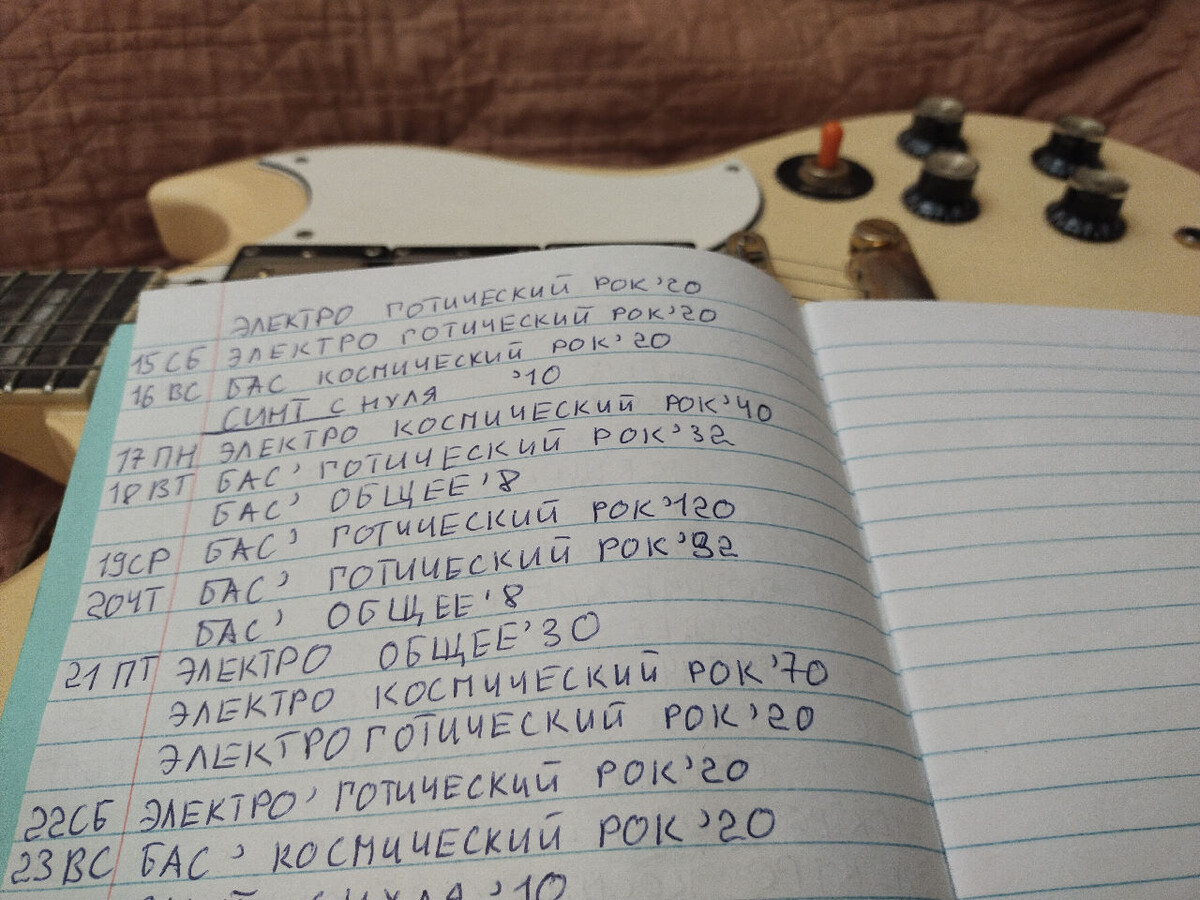 ЭЛЕКТРО ГОТИЧЕСКИЙ РОК'20
15 СБ ЭЛЕКТРО ГОТИЧЕСКИЙ РОК'20
16 ВС БАС КОСМИЧЕСКИЙ РОК'20
СИНТ С НУЛЯ '10
17 ПН ЭЛЕКТРО КОСМИЧЕСКИЙ РОК'40
18 ВТ БАС' ГОТИЧЕСКИЙ РОК'32
БАС' ОБЩЕЕ'8
19 СР БАС' ГОТИЧЕСКИЙ РОК'120
20 ЧТ БАС' ГОТИЧЕСКИЙ РОК'92
БАС' ОБЩЕЕ'8
21 ПТ ЭЛЕКТРО ОБЩЕЕ'30
ЭЛЕКТРО КОСМИЧЕСКИЙ РОК'70
ЭЛЕКТРО ГОТИЧЕСКИЙ РОК'20
22 СБ ЭЛЕКТРО' ГОТИЧЕСКИЙ РОК'20
23 ВС БАС' КОСМИЧЕСКИЙ РОК'20
С НУЛЯ '10